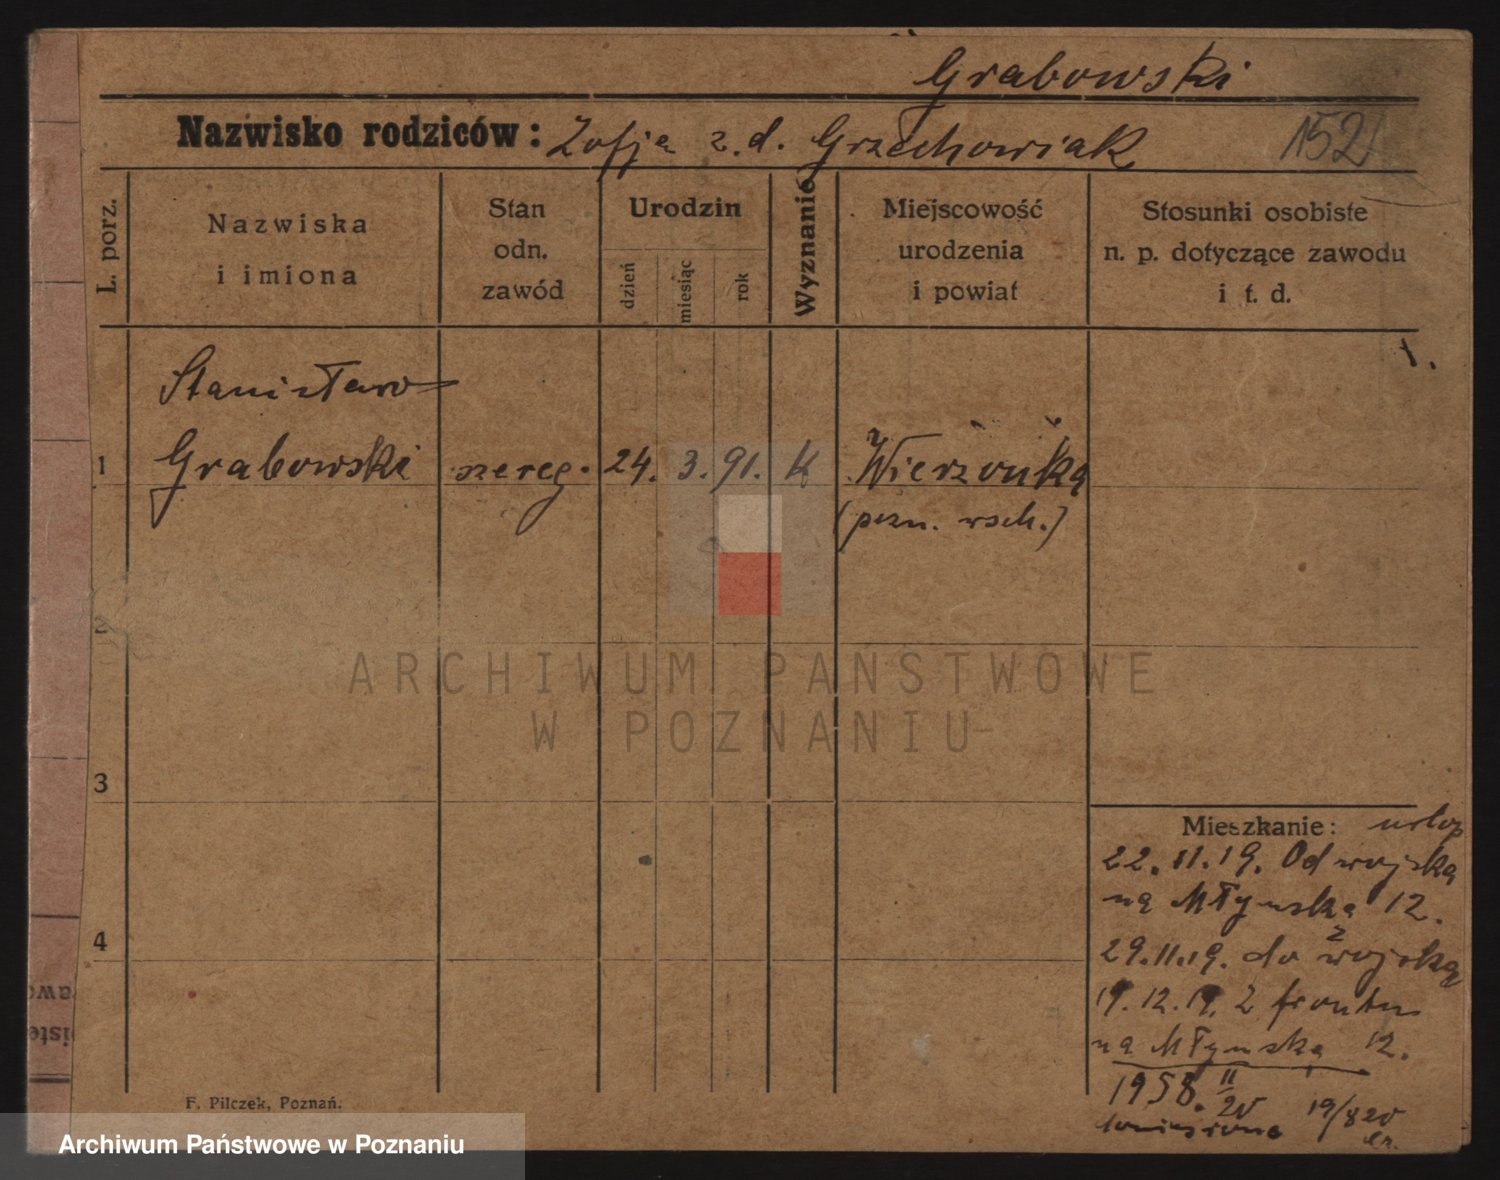 Grabowski
Nazwisko rodziców: Zofja z. d. Grzechowiak 152
L. porz.
Nazwiska i imiona
Stan odn. zawód
Urodzin
dzień miesiąc rok
Wyznanie
Miejscowość urodzenia i powiat
Stosunki osobiste n. p. dotyczące zawodu i t. d.
1.
Stanisław
1 Grabowski szereg. 24. 3. 91. K Wierzonka
(pozn. wsch.)
2
ARCHIWUM PAŃSTWOWE
W POZNANIU
3
Mieszkanie: urlop
22.11.19. Od wojska
na Młyńską 12.
4
29.11.19. do wojska
19.12.19. Z frontu
na Młyńską 12.
1958. II/20
19/8 20
F. Pilczek, Poznań.
Archiwum Państwowe w Poznaniu